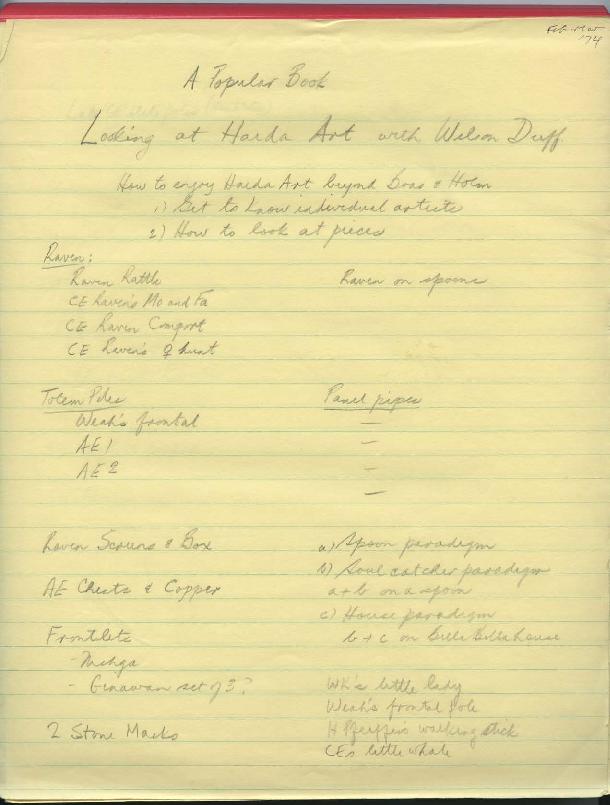 Feb-Mar
'74
A Popular Book
Looking at Haida Art with Wilson Duff
How to enjoy Haida Art beyond Boas & Holm
1) Get to know individual artists
2) How to look at pieces
Raven:
Raven Rattle
Raven on spoons
CE Raven's Mo and Fa
CE Raven Comport
CE Raven's ♀ hunt
Totem Poles
Panel pipes
Weah's frontal
—
AE 1
—
AE 2
—
—
Raven Screens & Box
a) Spoon paradigm
b) Soul catcher paradigm
AE Chests & Copper
a + b on a spoon
c) House paradigm
Frontlets
b + c on Bella Bella house
- Nishga
- Ginawan set of 3?
WH's little lady
Weah's frontal pole
2 Stone Masks
H Pfeiffer's walking stick
CEs little whale